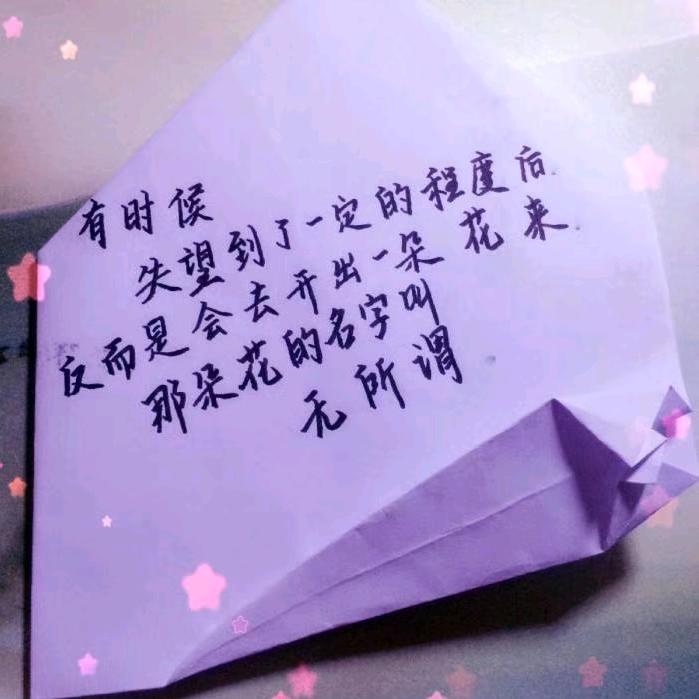 有时候
失望到了一定的程度后
反而是会去开出一朵花来
那朵花的名字叫
无所谓